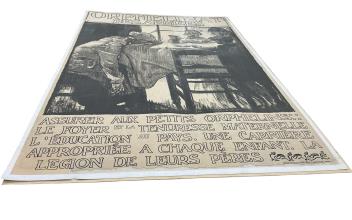 ORPHELINAT
ASSURER AUX PETITS ORPHELINS
LE FOYER ET LA TENDRESSE MATERNELLE
L'ÉDUCATION AU PAYS, UNE CARRIÈRE
APPROPRIÉE A CHAQUE ENFANT, LA
LÉGION DE LEURS PÈRES